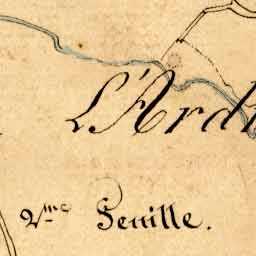 L'Ard
2.me Feuille.